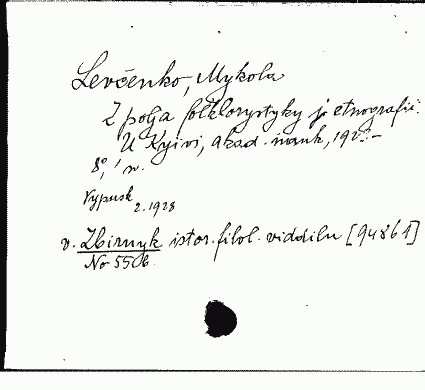 Levčenko, Mykola
Z polja folklorystyky j etnografii.
U Kyivi, akad. nauk, 192?-
8°, 1 v.
Vypusk 2. 1928
v. Zbirnyk istor. filol. viddilu [94861]
No 55b